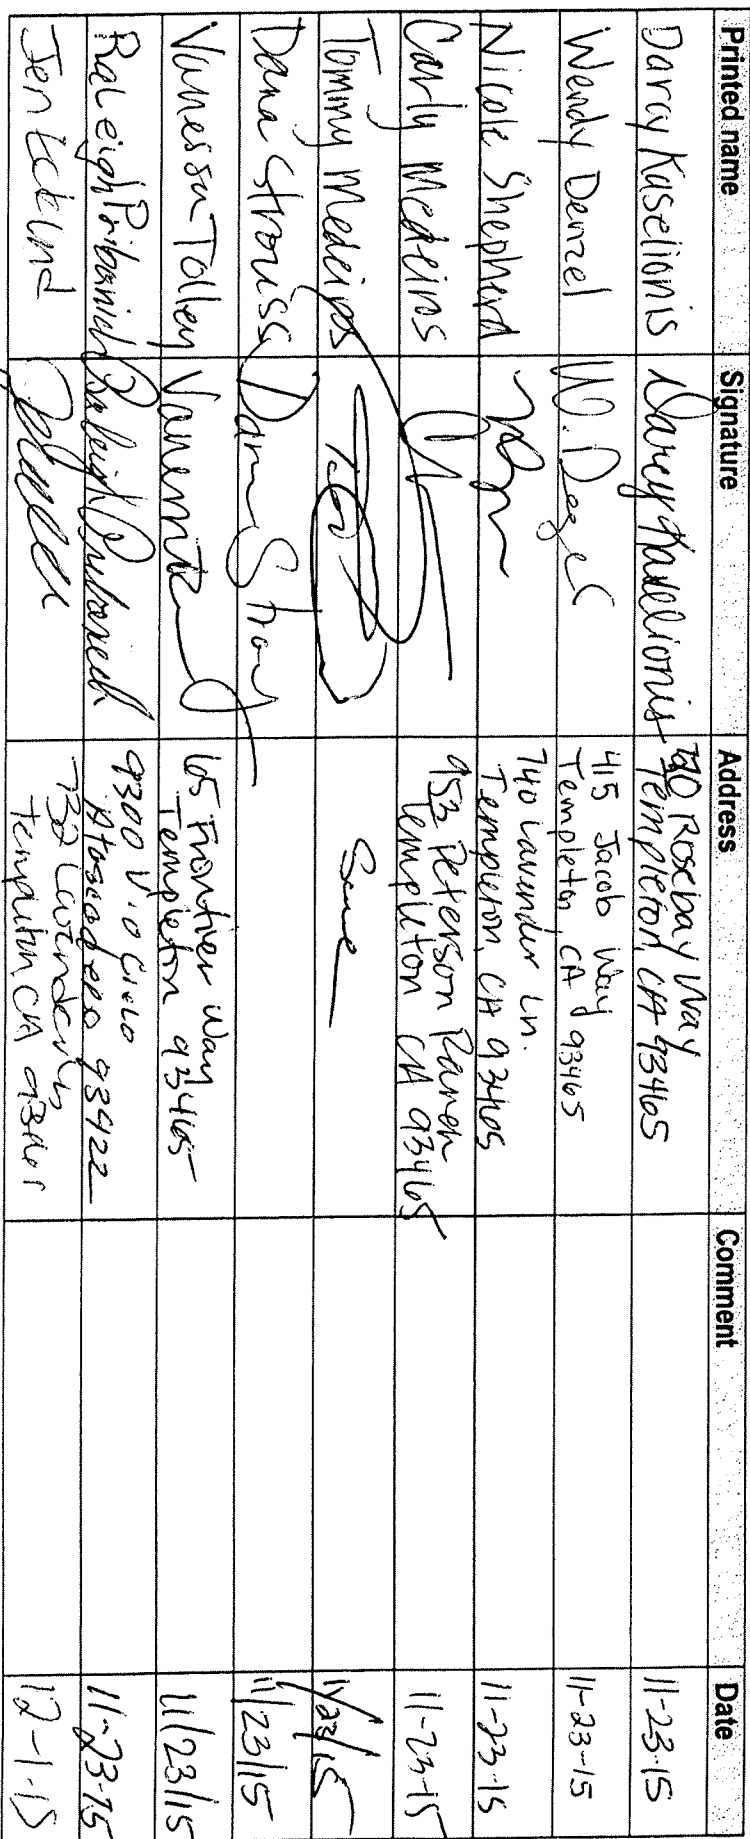 Printed name Signature Address Comment Date
Darcy Kaselionis Darcy Kaselionis Rosebay Way
Templeton, CA 93465 11-23-15
Wendy Denzel W. Dezel 415 Jacob Way
Templeton, CA 93465 11-23-15
Nicole Shepherd 740 Lavender Ln.
Templeton, CA 93465 11-23-15
Carly Medeiros 953 Peterson Ranch
Templeton CA 93465 11-23-15
Tommy Medeiros Same 11/23/15
Dana Strouss Dana Strou 11/23/15
Vanessa Tolley 65 Frontier Way
Templeton 93465 11/23/15
Raleigh Pribanich Raleigh Pribanich 9300 Vio Cielo
Atascadero 93422 11-23-15
Jen Ecklund 732 Lavender Ln
Templeton CA 12-1-15